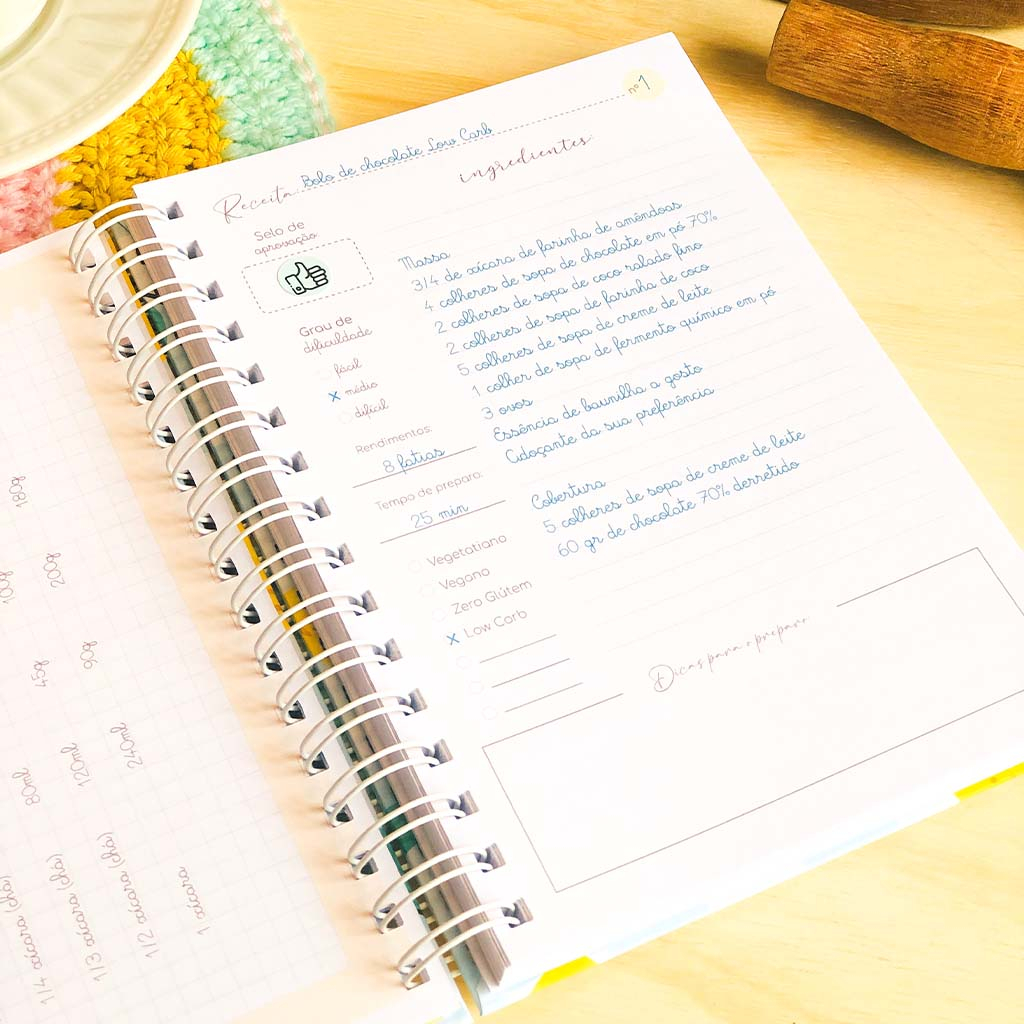 180g
100g
200g
45g
90g
80ml
120ml
240ml
1/4 xícara (chá)
1/3 xícara (chá)
1/2 xícara (chá)
1 xícara
nº 1
Receita: Bolo de chocolate Low Carb
ingredientes:
Selo de
aprovação
Grau de
dificuldade
fácil
X médio
difícil
Rendimentos:
8 fatias
Tempo de preparo:
25 min
Vegetatiano
Vegano
Zero Glútem
X Low Carb
Massa
3/4 de xícara de farinha de amêndoas
4 colheres de sopa de chocolate em pó 70%
2 colheres de sopa de coco ralado fino
2 colheres de sopa de farinha de coco
5 colheres de sopa de creme de leite
1 colher de sopa de fermento químico em pó
3 ovos
Essência de baunilha a gosto
Adoçante da sua preferência
Cobertura
5 colheres de sopa de creme de leite
60 gr de chocolate 70% derretido
Dicas para o preparo: